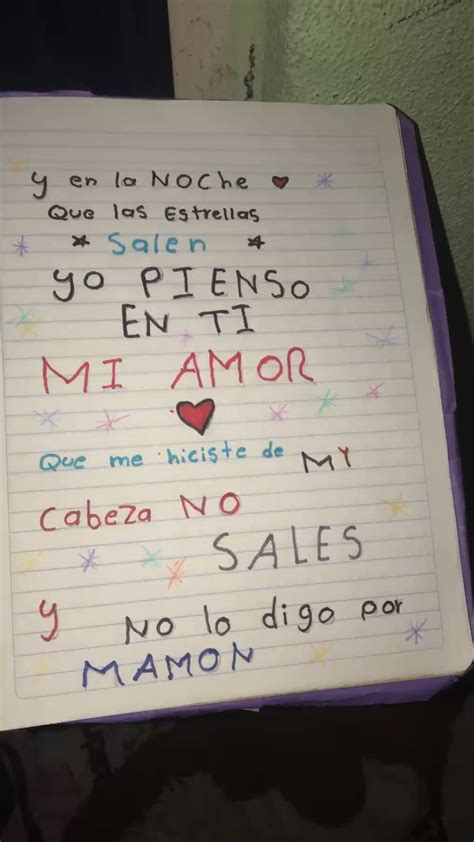 y en la NOche
Que las Estrellas
Salen
yo PIENSO
EN TI
MI AMOR
Que me hiciste de MY
Cabeza NO
SALES
y NO lo digo por
MAMON